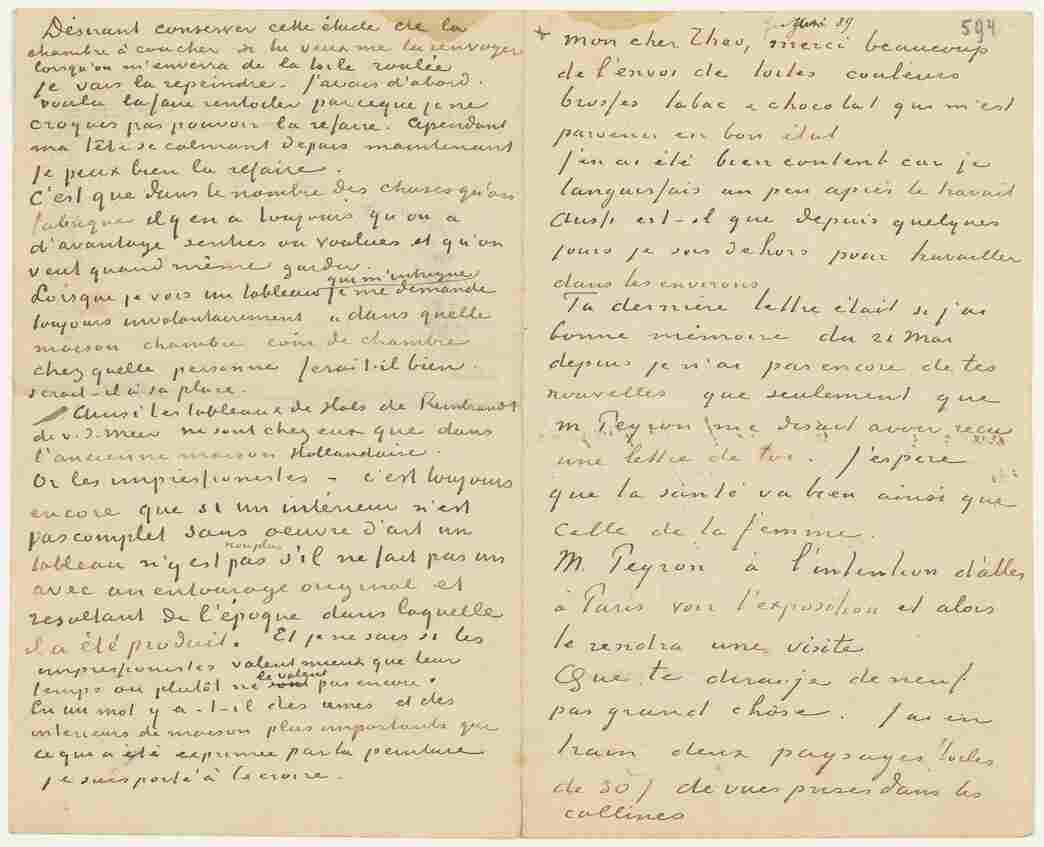 Désirant conserver cette étude de la
chambre à coucher si tu veux me la renvoyer
lorsqu'on m'enverra de la toile roulée
je vais la repeindre. J'avais d'abord
voulu la faire rentoiler parceque je ne
croyais pas pouvoir la refaire. Cependant
ma tête se calmant depuis maintenant
je peux bien la refaire.
C'est que dans le nombre des choses qu'on
fabrique il y en a toujours qu'on a
d'avantage senties ou voulues et qu'on
veut quand même garder.
qui m'intrigue
Lorsque je vois un tableau je me demande
toujours involontairement "dans quelle
maison chambre coin de chambre
chez quelle personne ferait-il bien.
serait-il à sa place.
Ainsi les tableaux de Hals de Rembrandt
de v. d. Meer ne sont chez eux que dans
l'ancienne maison Hollandaise.
Or les impressionistes – c'est toujours
encore que si un intérieur n'est
pas complet sans oeuvre d'art un
non plus
tableau n'y est pas s'il ne fait pas un
avec un entourage original et
resultant de l'époque dans laquelle
il a été produit. Et je ne sais si les
impressionistes valent mieux que leur
le valent
temps ou plutôt ne sont pas encore.
En un mot y a-t-il des ames et des
intérieurs de maison plus importants que
ce qui a été exprimée par la peinture
je suis porté à le croire.
Juin 89
594
Mon cher Theo, merci beaucoup
de l'envoi de toiles couleurs
brosses tabac & chocolat qui m'est
parvenu en bon état
J'en ai été bien content car je
languissais un peu après le travail
Aussi est-il que depuis quelques
jours je sors dehors pour travailler
dans les environs
Ta dernière lettre était si j'ai
bonne mémoire du 21 Mai
depuis je n'ai pas encore de tes
nouvelles que seulement que
M. Peyron me disait avoir reçu
une lettre de toi. J'espère
que ta santé va bien ainsi que
celle de ta femme.
M. Peyron à l'intention d'aller
à Paris voir l'exposition et alors
te rendra une visite
Que te dirai-je de neuf
pas grand chôse. J'ai en
train deux paysages (toiles
de 30) de vues prises dans les
collines